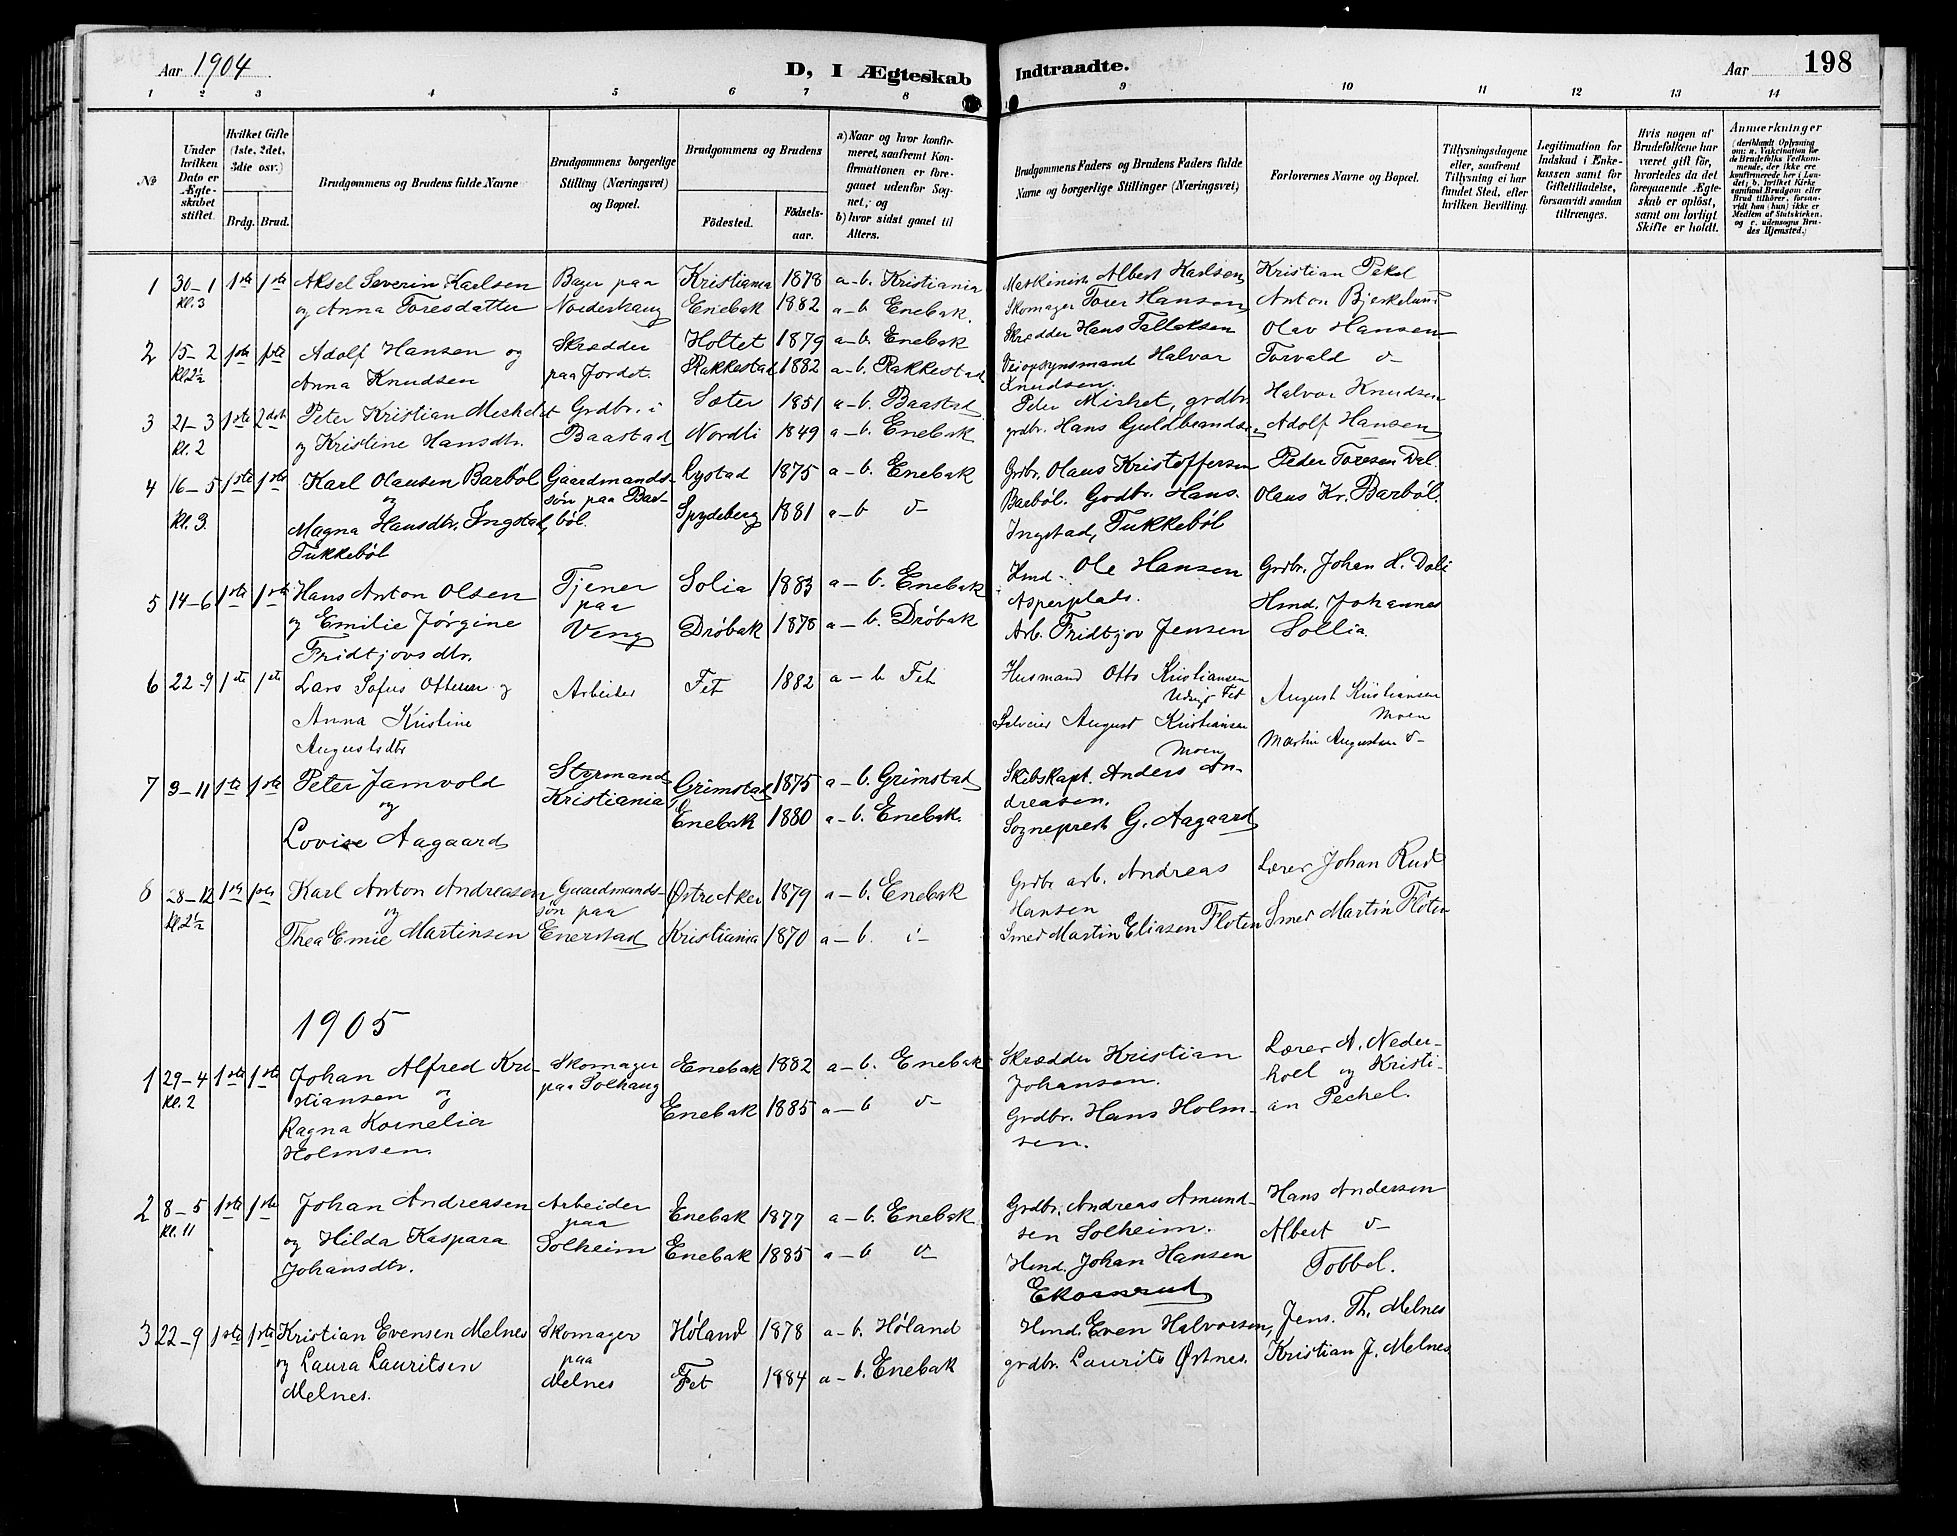 Aar 1904
D, I Ægteskab Indtraadte.
Aar
198
1 2 3 4 5 6 7 8 9 10 11 12 13 14
№
Under hvilken Dato er Ægteskabet stiftet.
Hvilket Gifte (1ste, 2det, 3die osv.)
Brdg. Brud.
Brudgommens og Brudens fulde Navne
Brudgommens borgerlige Stilling (Næringsvei) og Bopæl.
Brudgommens og Brudens
Födested.
Födselsaar.
a) Naar og hvor konfirmeret, saafremt Konfirmationen er foregaaet udenfor Sognet; og
b) hvor sidst gaaet til Alters.
Brudgommens Faders og Brudens Faders fulde Navne og borgerlige Stillinger (Næringsvei)
Forlovernes Navne og Bopæl.
Tillysningsdagene eller, saafremt Tillysning ei har fundet Sted, efter hvilken Bevilling.
Legitimation for Indskud i Enkekassen samt for Giftetilladelse, forsaavidt saadan tiltrænges.
Hvis nogen af Brudefolkene har været gift för, hvorledes da det foregaaende Ægteskab er oplöst, samt om lovligt Skifte er holdt.
Anmerkninger (deriblandt Oplysning om: a. Vakcination for de Brudefolks Vedkommende, der ikke ere konfirmerede her i Landet; b. hvilket Kirkesamfund Brudgom eller Brud tilhörer, forsaavidt han (hun) ikke er Medlem af Statskirken, og c. udensogns Brudes Hjemsted.)
1 30–1 1ste 1ste Aksel Severin Karlsen Bager paa Kristiania 1878 a–b. Kristiania Maskinist Albert Karlsen Kristian Pekel
Kl. 3 og Anna Toresdatter Nordenhaug Enebak 1882 a–b Enebak. Skomager Torer Hansen Anton Bjerkelund
2 15–2 1ste 1ste Adolf Hansen og Skrædder Holtet 1879 a–b. Enebak Skrædder Hans Tallaksen Olav Hansen
Kl. 2½ Anna Knudsen paa Jordet. Rakkestad 1882 a–b. Rakkestad Veiopsynsmand Halvor Torvald v–
Knudsen.
3 21–3 1ste 2det Peter Kristian Meshelt Grdbr. i Sæter 1851 a–b. Baastad Peder Mishet, grdbr. Halvor Knudsen
Kl. 2 og Kristine Hansdtr. Baastad Nordli 1849 a–b. Enebak grdbr. Hans Guldbrandsen Adolf Hansen
4 16–5 1ste 1ste Karl Olausen Barböl Gaardmands- Rystad 1875 a–b. Enebak Grdbr. Olaus Kristoffersen Peder Toresen Dal.
og sön paa Bar- Barböl. Grdbr. Hans Olaus Kr. Barböl.
Kl. 3. Magna Hansdtr. Ingstad, böl. Spydeberg 1881 a–b v– Ingstad, Tukkeböl
Tukkeböl
5 14–6 1ste 1ste Hans Anton Olsen Tjener Solia 1883 a–b. Enebak Hmd. Ole Hansen Grdbr. Johan H. Dali
og Emilie Jørgine paa Asperplads. Hmd. Johannes
Fridtjovsdtr. Veng Dröbak 1878 a–b. Dröbak Arb. Fridtjov Jensen Sollia.
6 22–9 1ste 1ste Lars Sofus Ottesen og Arbeider Fet 1882 a–b Fet Husmand Otto Kristiansen August Kristiansen
Fet Moen
Anna Kristine August Kristiansen Martin Augustsen v–
Augustsdtr Moen
7 3–11 1ste 1ste Peter Jamvold Styrmand Grimstad 1875 a–b. Grimstad Skibskapt. Anders An-
og Kristiania Enebak 1880 a–b. Enebak. dreasen.
Lovise Aagaard Sogneprest G. Aagaard
8 28–12 1ste 1ste Karl Anton Andreasen Gaardmands- Østre Aker 1879 a–b. Enebak Grdbr arb. Andreas Lærer Johan Rud
Kl. 2½ og sön paa Hansen
Thea Emie Martinsen Enerstad Kristiania 1870 a–b. i– Smed Martin Eliasen Floten Smed Martin Flöten
1905
1 29–4 1ste 1ste Johan Alfred Kri- Skomager Enebak 1882 a–b. Enebak Skrædder Kristian Lærer A. Neder-
Kl. 2 stiansen og paa Solhaug Johansen. hoel og Kristi-
Ragna Kornelia Enebak 1885 a–b v– Grdbr. Hans Holm- an Pechel.
Holmsen. sen.
2 8–5 1ste 1ste Johan Andreasen Arbeider Enebak 1877 a–b. Enebak Grdbr. Andreas Amund- Hans Andersen
Kl. 11 og Hilda Kaspara paa sen Solheim. Albert v–
Johansdtr. Solheim Enebak 1885 a–b v– Hmd. Johan Hansen Tobbel.
Ekornrud
3 22–9 1ste 1ste Kristian Evensen Melnes Skomager Høland 1878 a–b. Høland Hmd. Even Halvorsen, Jens. Th. Melnes
og Laura Lauritsen paa Fet 1884 a–b. Enebak grdbr. Laurits Østnes. Kristian J. Melnes
Melnes. Melnes